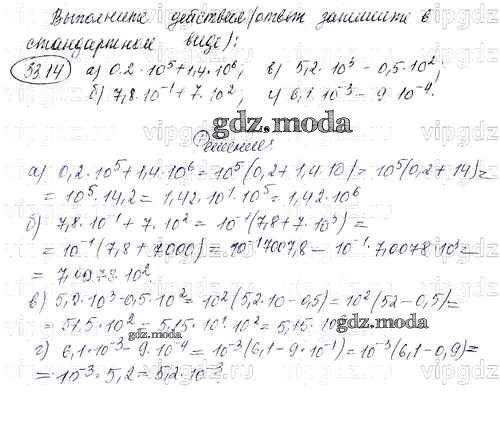 Выполните действия (ответ запишите в
стандартном виде):
33.14 а) 0.2·10⁵+1,4·10⁶; в) 5,2·10³-0,5·10²;
б) 7,8·10⁻¹+7·10²; г) 6,1·10⁻³-9·10⁻⁴.
gdz.moda
Решение:
а) 0,2·10⁵+1,4·10⁶=10⁵(0,2+1,4·10)=10⁵(0,2+14)=
=10⁵·14,2=1,42·10¹·10⁵=1,42·10⁶
б) 7,8·10⁻¹+7·10²=10⁻¹(7,8+7·10³)=
=10⁻¹(7,8+7000)=10⁻¹7007,8=10⁻¹·7,0078·10³=
=7,0078·10².
в) 5,2·10³-0,5·10²=10²(5,2·10-0,5)=10²(52-0,5)=
=51,5·10²=5,15·10¹·10²=5,15·10
gdz.moda
г) 6,1·10⁻³-9·10⁻⁴=10⁻³(6,1-9·10⁻¹)=10⁻³(6,1-0,9)=
=10⁻³·5,2=5,2·10⁻³.
gdz.moda